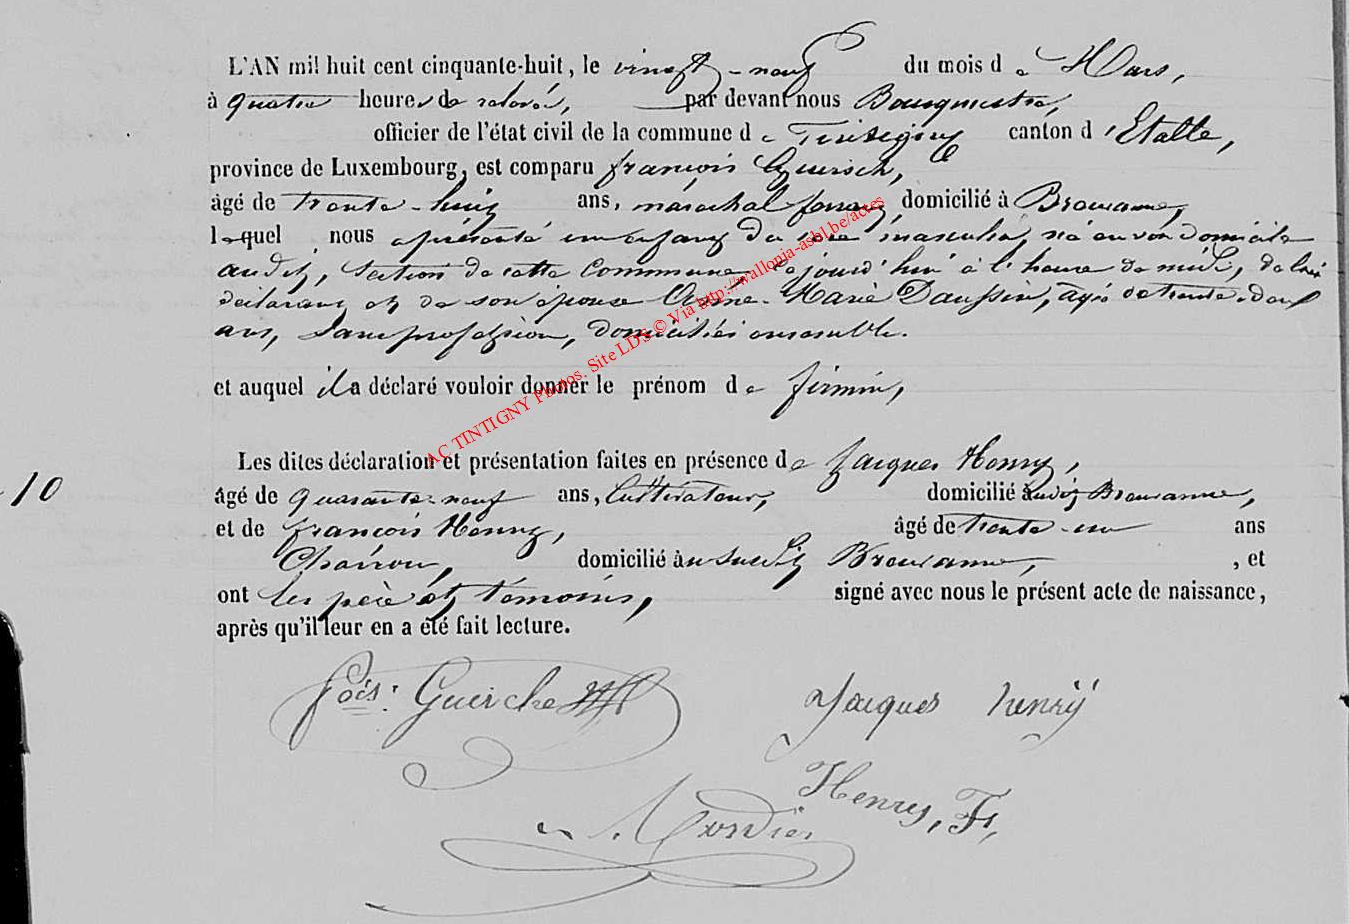 L'AN mil huit cent cinquante-huit, le vingt-neuf du mois de Mars,
à quatre heures de relevée, par devant nous Bourgmestre,
officier de l'état civil de la commune de Tintigny canton d'Etalle,
province de Luxembourg, est comparu françois Guirsch,
âgé de trente-huit ans, maréchal ferrant, domicilié à Breuvanne,
lequel nous a présenté un enfant du sexe masculin, né en son domicile
audit, section de cette Commune, ce jourd'hui à l'heure de midi, de lui
déclarant et de son épouse Anne-Marie Daussin, agée de trente-deux
ans, sans profession, domiciliés ensemble.
et auquel il a déclaré vouloir donner le prénom de firmin,
Les dites déclaration et présentation faites en présence de Jacques Henry,
10
âgé de quarante-neuf ans, Cultivateur, domicilié audit Breuvanne,
et de françois Henry, âgé de trente-un ans
Charron, domicilié au susdit Breuvanne, , et
ont les père et témoins, signé avec nous le présent acte de naissance,
après qu'il leur en a été fait lecture.
fois: Guirche Jacques henrÿ
Henry, Fs,
AC TINTIGNY Photos. Site LDS © Via http://wallonia-asbl.be/actes